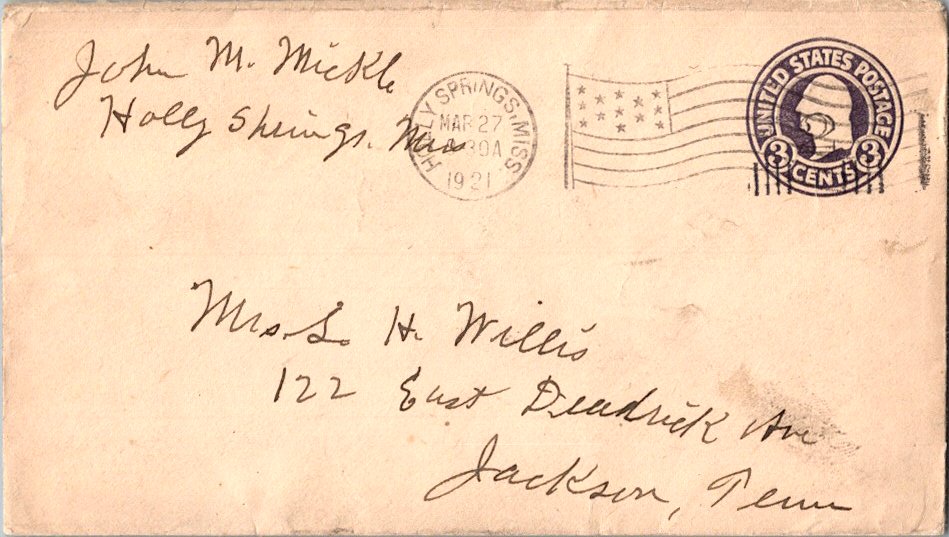 John M. Mickle
Holly Springs. Miss
HOLLY SPRINGS, MISS
MAR 27
30A
1921
UNITED STATES POSTAGE
3 CENTS 3
2
Mrs. L. H. Willis
122 East Deadrick Ave
Jackson, Tenn